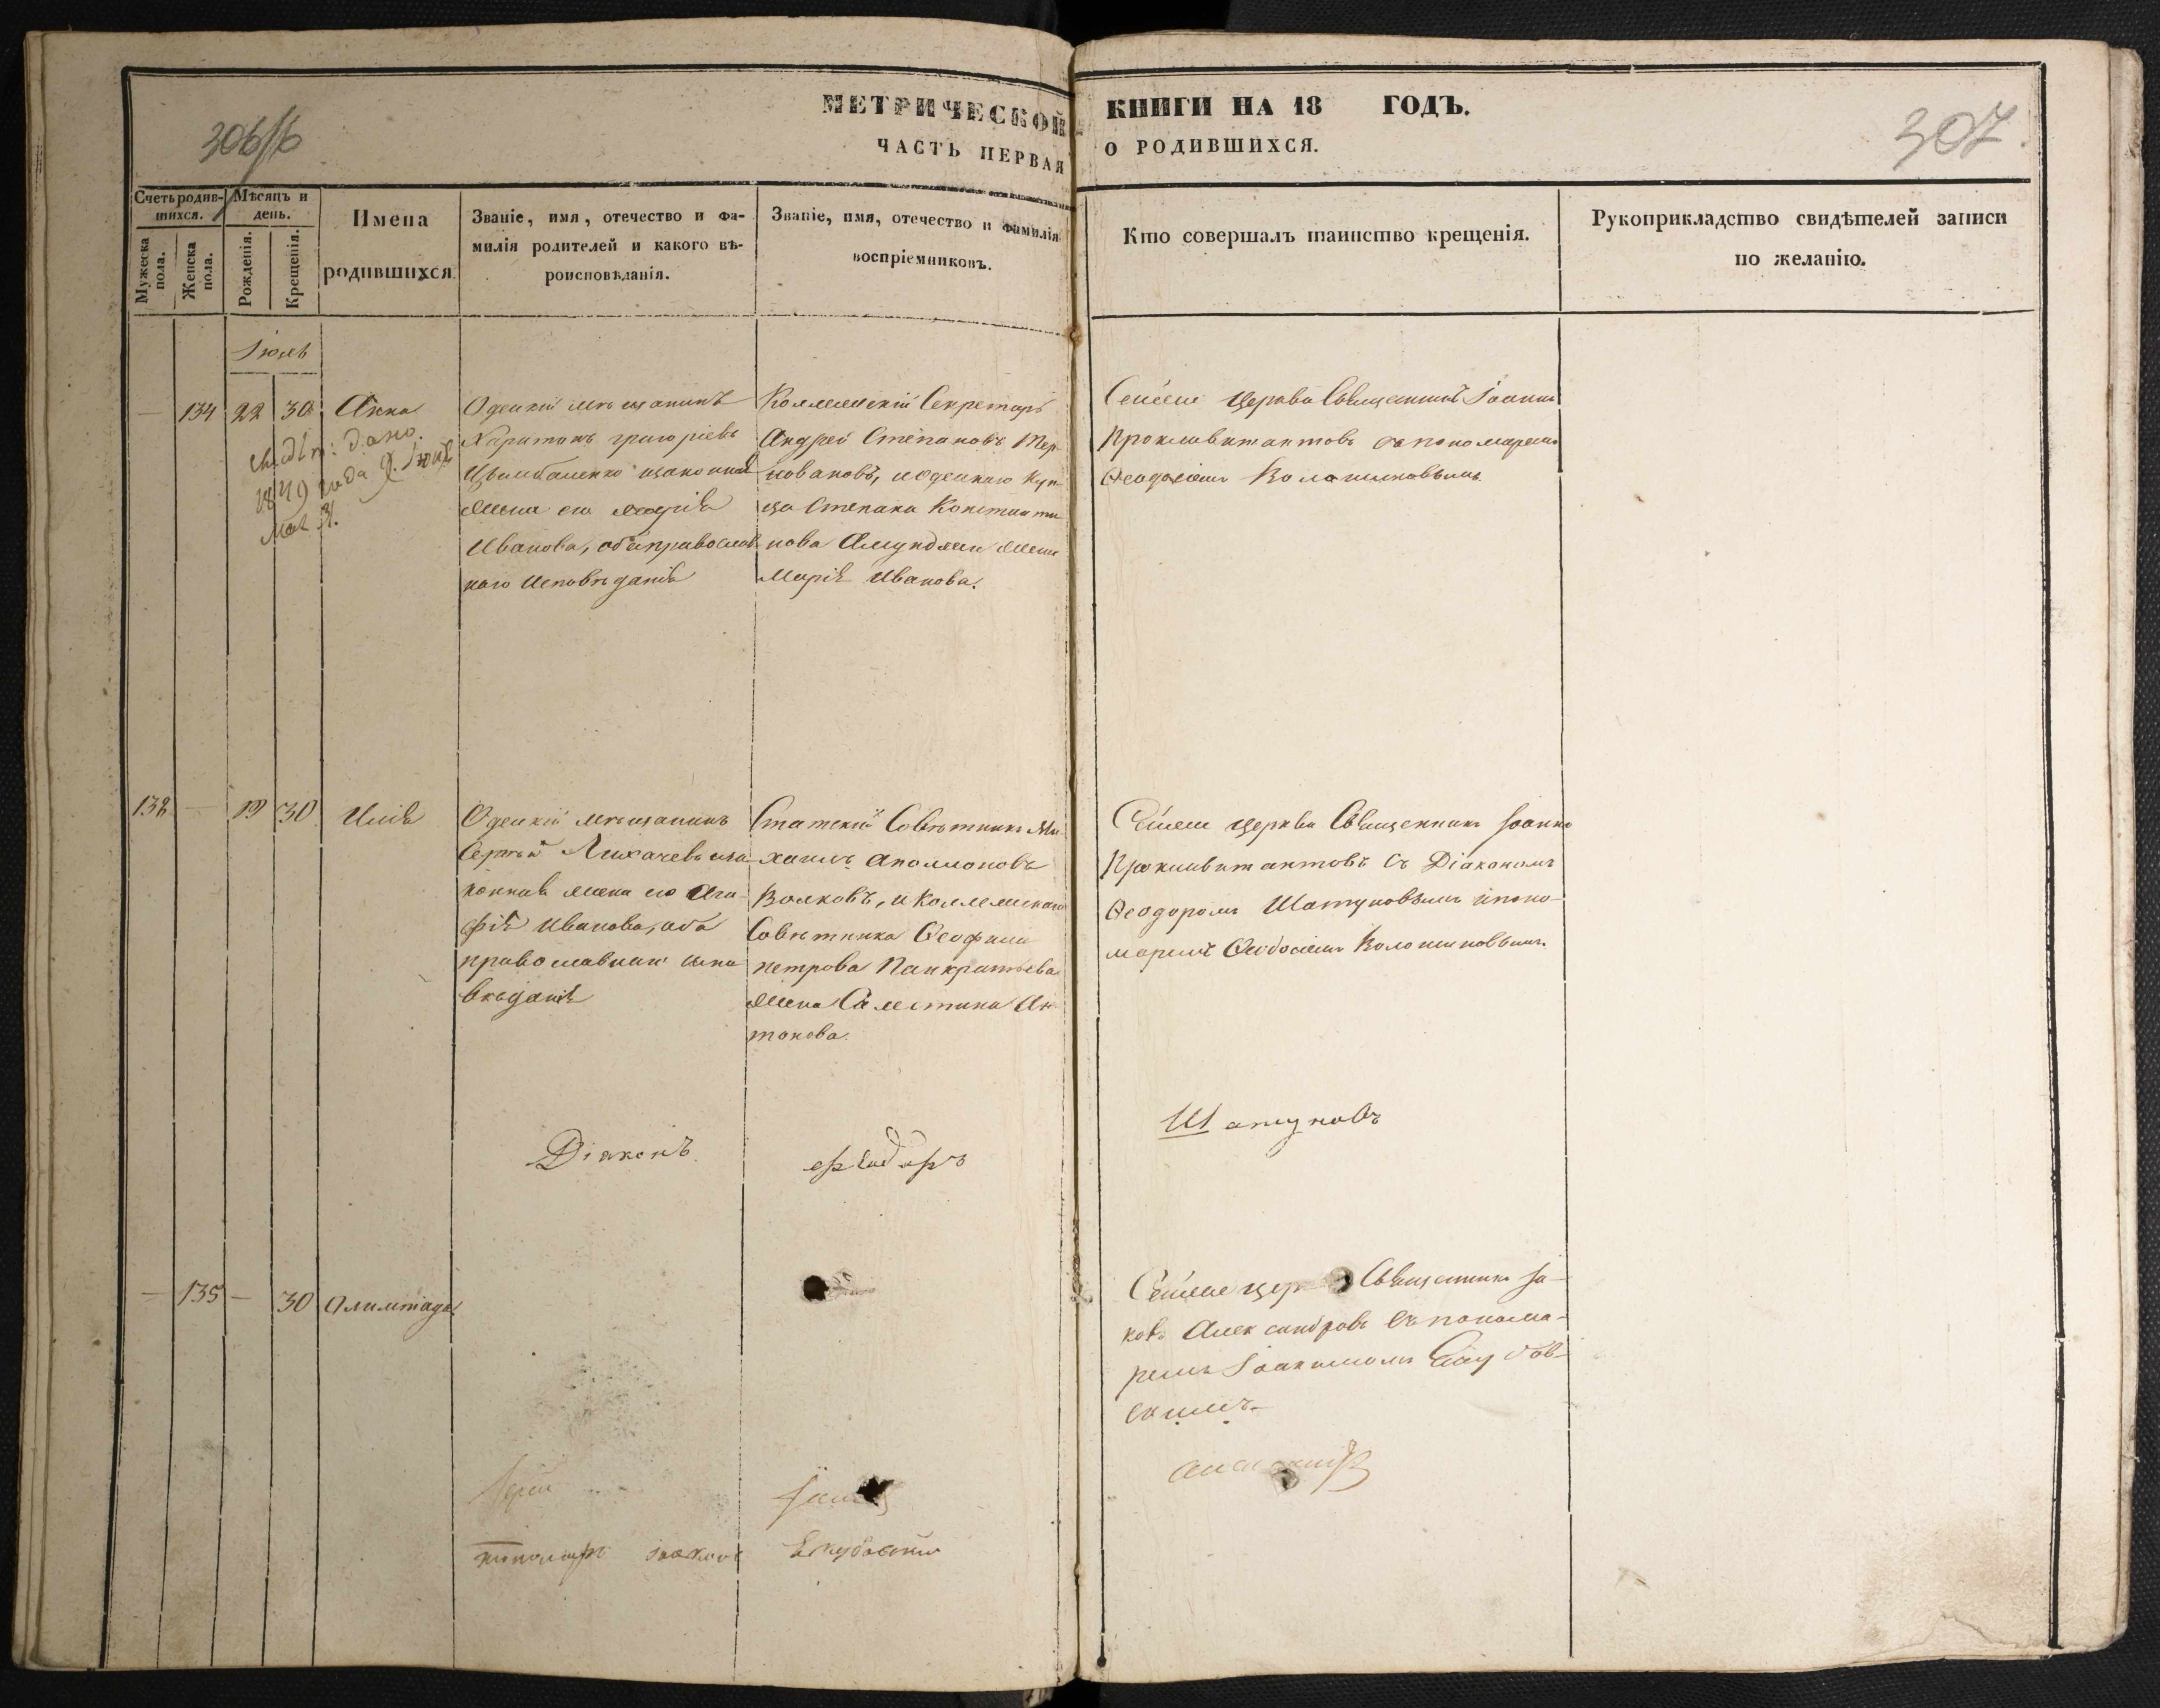 306/16
МЕТРИЧЕСКОЙ
ЧАСТЬ ПЕРВАЯ
КНИГИ НА 18 ГОДЪ.
О РОДИВШИХСЯ.
307.
Счетъ родив-
шихся.
Мужеска
пола.
Женска
пола.
Мѣсяцъ и
день.
Рожденія.
Крещенія.
Имена
родившихся
Званіе, имя, отечество и фа-
милія родителей и какого вѣ-
роисповѣданія.
Званіе, имя, отечество и фамилія
воспріемниковъ.
Кто совершалъ таинство крещенія.
Рукоприкладство свидѣтелей записи
по желанію.
Іюль
— 134 22 30 Анна
дано.
1849 года
Одескій мѣщанинъ
Харитонъ григоріевъ
Цымбаленко законная
жена его Марія
Иванова, оба православ
наго исповѣданія
Коллежскій Секретарь
Андрей Степановъ Тер-
новановъ, и одескаго куп-
ца Степана Константи
нова жена
Марія Иванова.
Сей же церкви Священникъ Іоаннъ
съ пономаремъ
Ѳеодосіемъ Волошиновымъ
138 — 19 30 Илія
Одескій мѣщанинъ
Сергѣй Лихачевъ зла
конная жена его Ага-
фія Иванова, оба
православнаго испо
вѣданія
Статскій Совѣтникъ Ми-
хаилъ Аполлоновъ
Волковъ, и Коллежскаго
Совѣтника Ѳеофила
петрова Панкратьева
жена Селестина Ан
тонова.
Сей же церкви Священникъ Іоаннъ
съ Діакономъ
Ѳеодоромъ Шатуновымъ и поно-
маремъ Ѳеодосіемъ Волошиновымъ.
Діаконъ Феодоръ Шатуновъ
— 135 — 30 Олимпіада
Сей же цер Священникъ Іа-
ковъ Александровъ съ понома-
ремъ Іоакимомъ
скимъ
Іерей
пономарь Іоакимъ